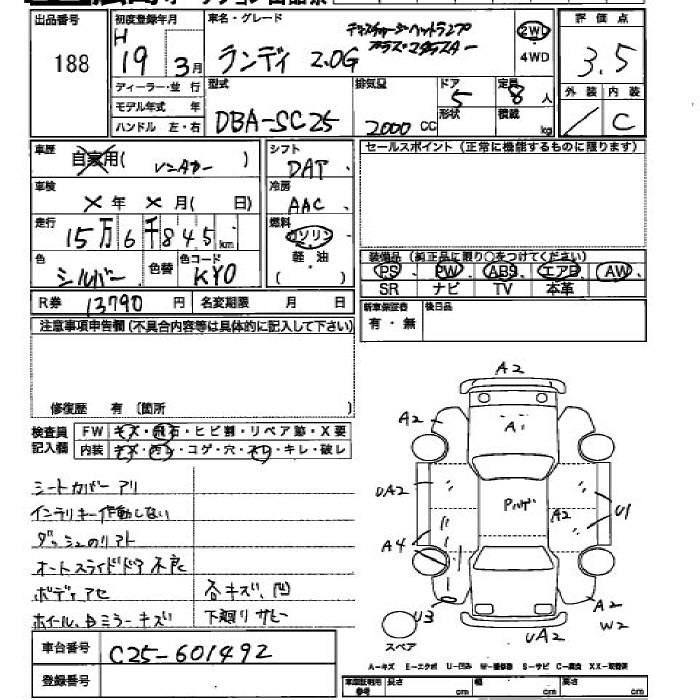 出品番号 初度登録年月 車名・グレード 評価点
188 H 19 3月 ランディ 2.0G 2WD 4WD 3.5
ディスチャージヘットランプ
ディーラー・並行 型式 排気量 ドア 定員 外装 内装
モデル年式 年 DBA-SC25 2000 cc 5 8人 / C
ハンドル 左・右 形状 積載 kg
車歴 自家用( レンタカー ) シフト DAT セールスポイント (正常に機能するものに限ります)
車検 × 年 × 月( 日) 冷房 AAC
走行 15万6千845km 燃料 ガソリン
軽・油
( )
色 シルバー 色替 色コード KY0
装備品 (純正品に限り○をつけてください)
PS PW ABS エアB AW
SR ナビ TV 本革
R券 13790 円 名変期限 月 日
新車保証書 後日品
有・無
注意事項申告欄 (不具合内容等は具体的に記入して下さい)
修復歴 有 〔箇所 〕
検査員 FW キズ・飛石・ヒビ割・リペア跡・X要
記入欄 内装 キズ・汚れ・コゲ・穴・スレ・キレ・破レ
シートカバーアリ
インテリキー作動しない
ダッシュのリアト
オートスライドドア不良
ボディアセ 各キズ、凹
ホイール、ドミラーキズ 下廻りサビー
車台番号 C25-601492
登録番号
A2
A2 A1
UA2 Pルーフ A2 U1
A4
U3 UA2 A2
W2
スペア
A-キズ E-エクボ U-凹み W-補修跡 S-サビ C-腐食 XX-取替済
車庫証明用参考 長さ cm 幅 cm 高さ cm